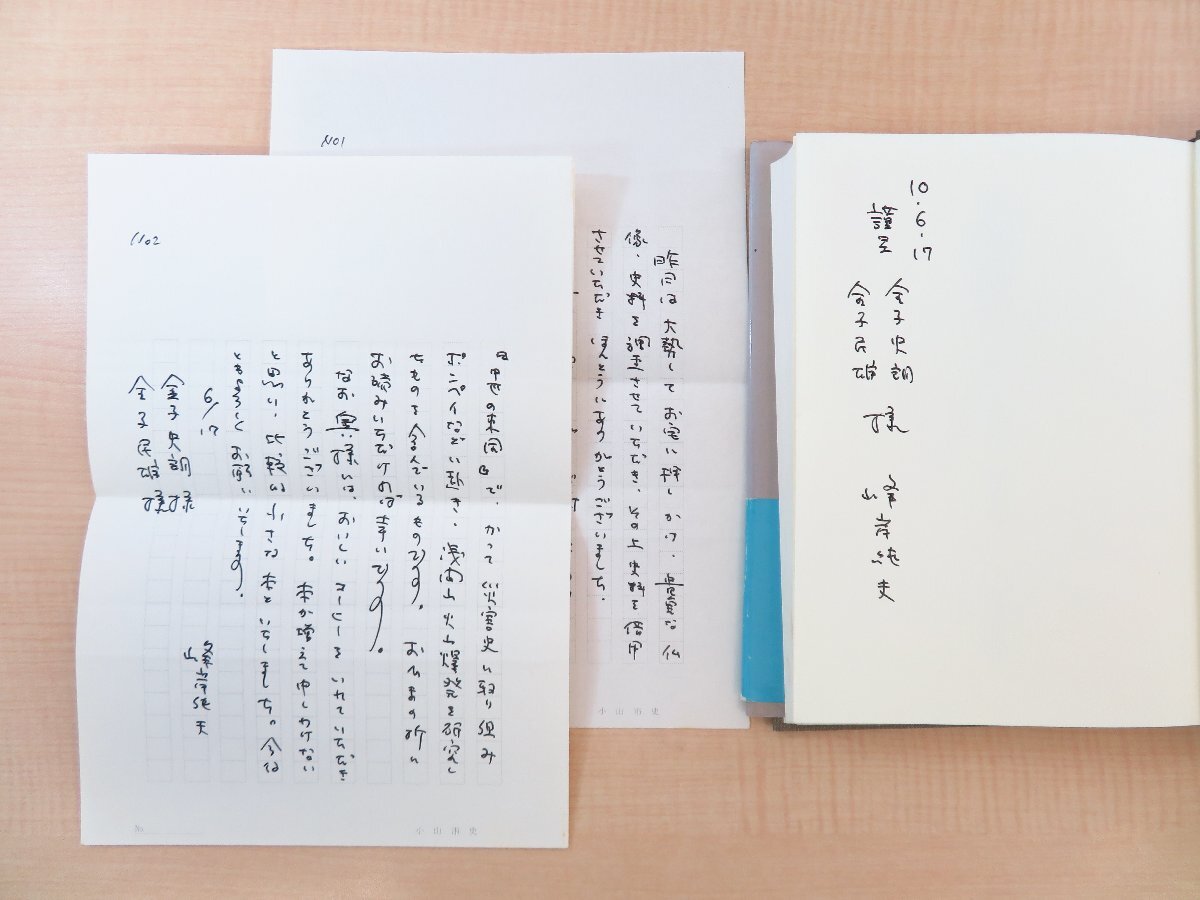 NO1
昨日は大勢してお宅に押しかけ、貴重な仏
像、史料を調査させていただき、その上史料を借用
させていただきほんとうにありがとうございました。
小山市史
NO2
『中世の東国』で、かつて災害史に取り組み
ポンペイなどに赴き、浅間山火山爆発を研究し
たものを含んでいるものです。おひまの折に
お読みいただければ幸いです。
なお奥様には、おいしいコーヒーをいれていただき
ありがとうございました。本が増えて申しわけない
と思い、比較的小さな本といたしました。今後
ともよろしくお願いいたします。
6/17
金子史朗様
金子民雄様
峰岸純夫
No.
小山市史
10.6.17
謹呈
金子史朗
金子民雄
様
峰岸純夫